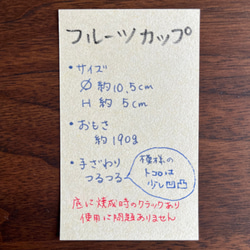 フルーツカップ
・サイズ
Ø 約10.5cm
H 約 5cm
・おもさ
約190g
・手ざわり
つるつる
模様の
トコロは
少し凹凸
底に焼成時のクラックあり
使用に問題ありません